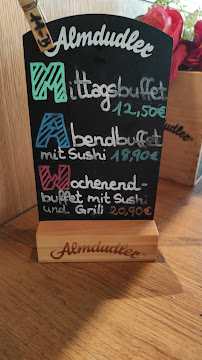 Almdudler
Mittagsbuffet
12,50€
Abendbuffet
mit Sushi 18,90€
Wochenend-
buffet mit Sushi
und Grill 20,90€
Almdudler
Almdudler